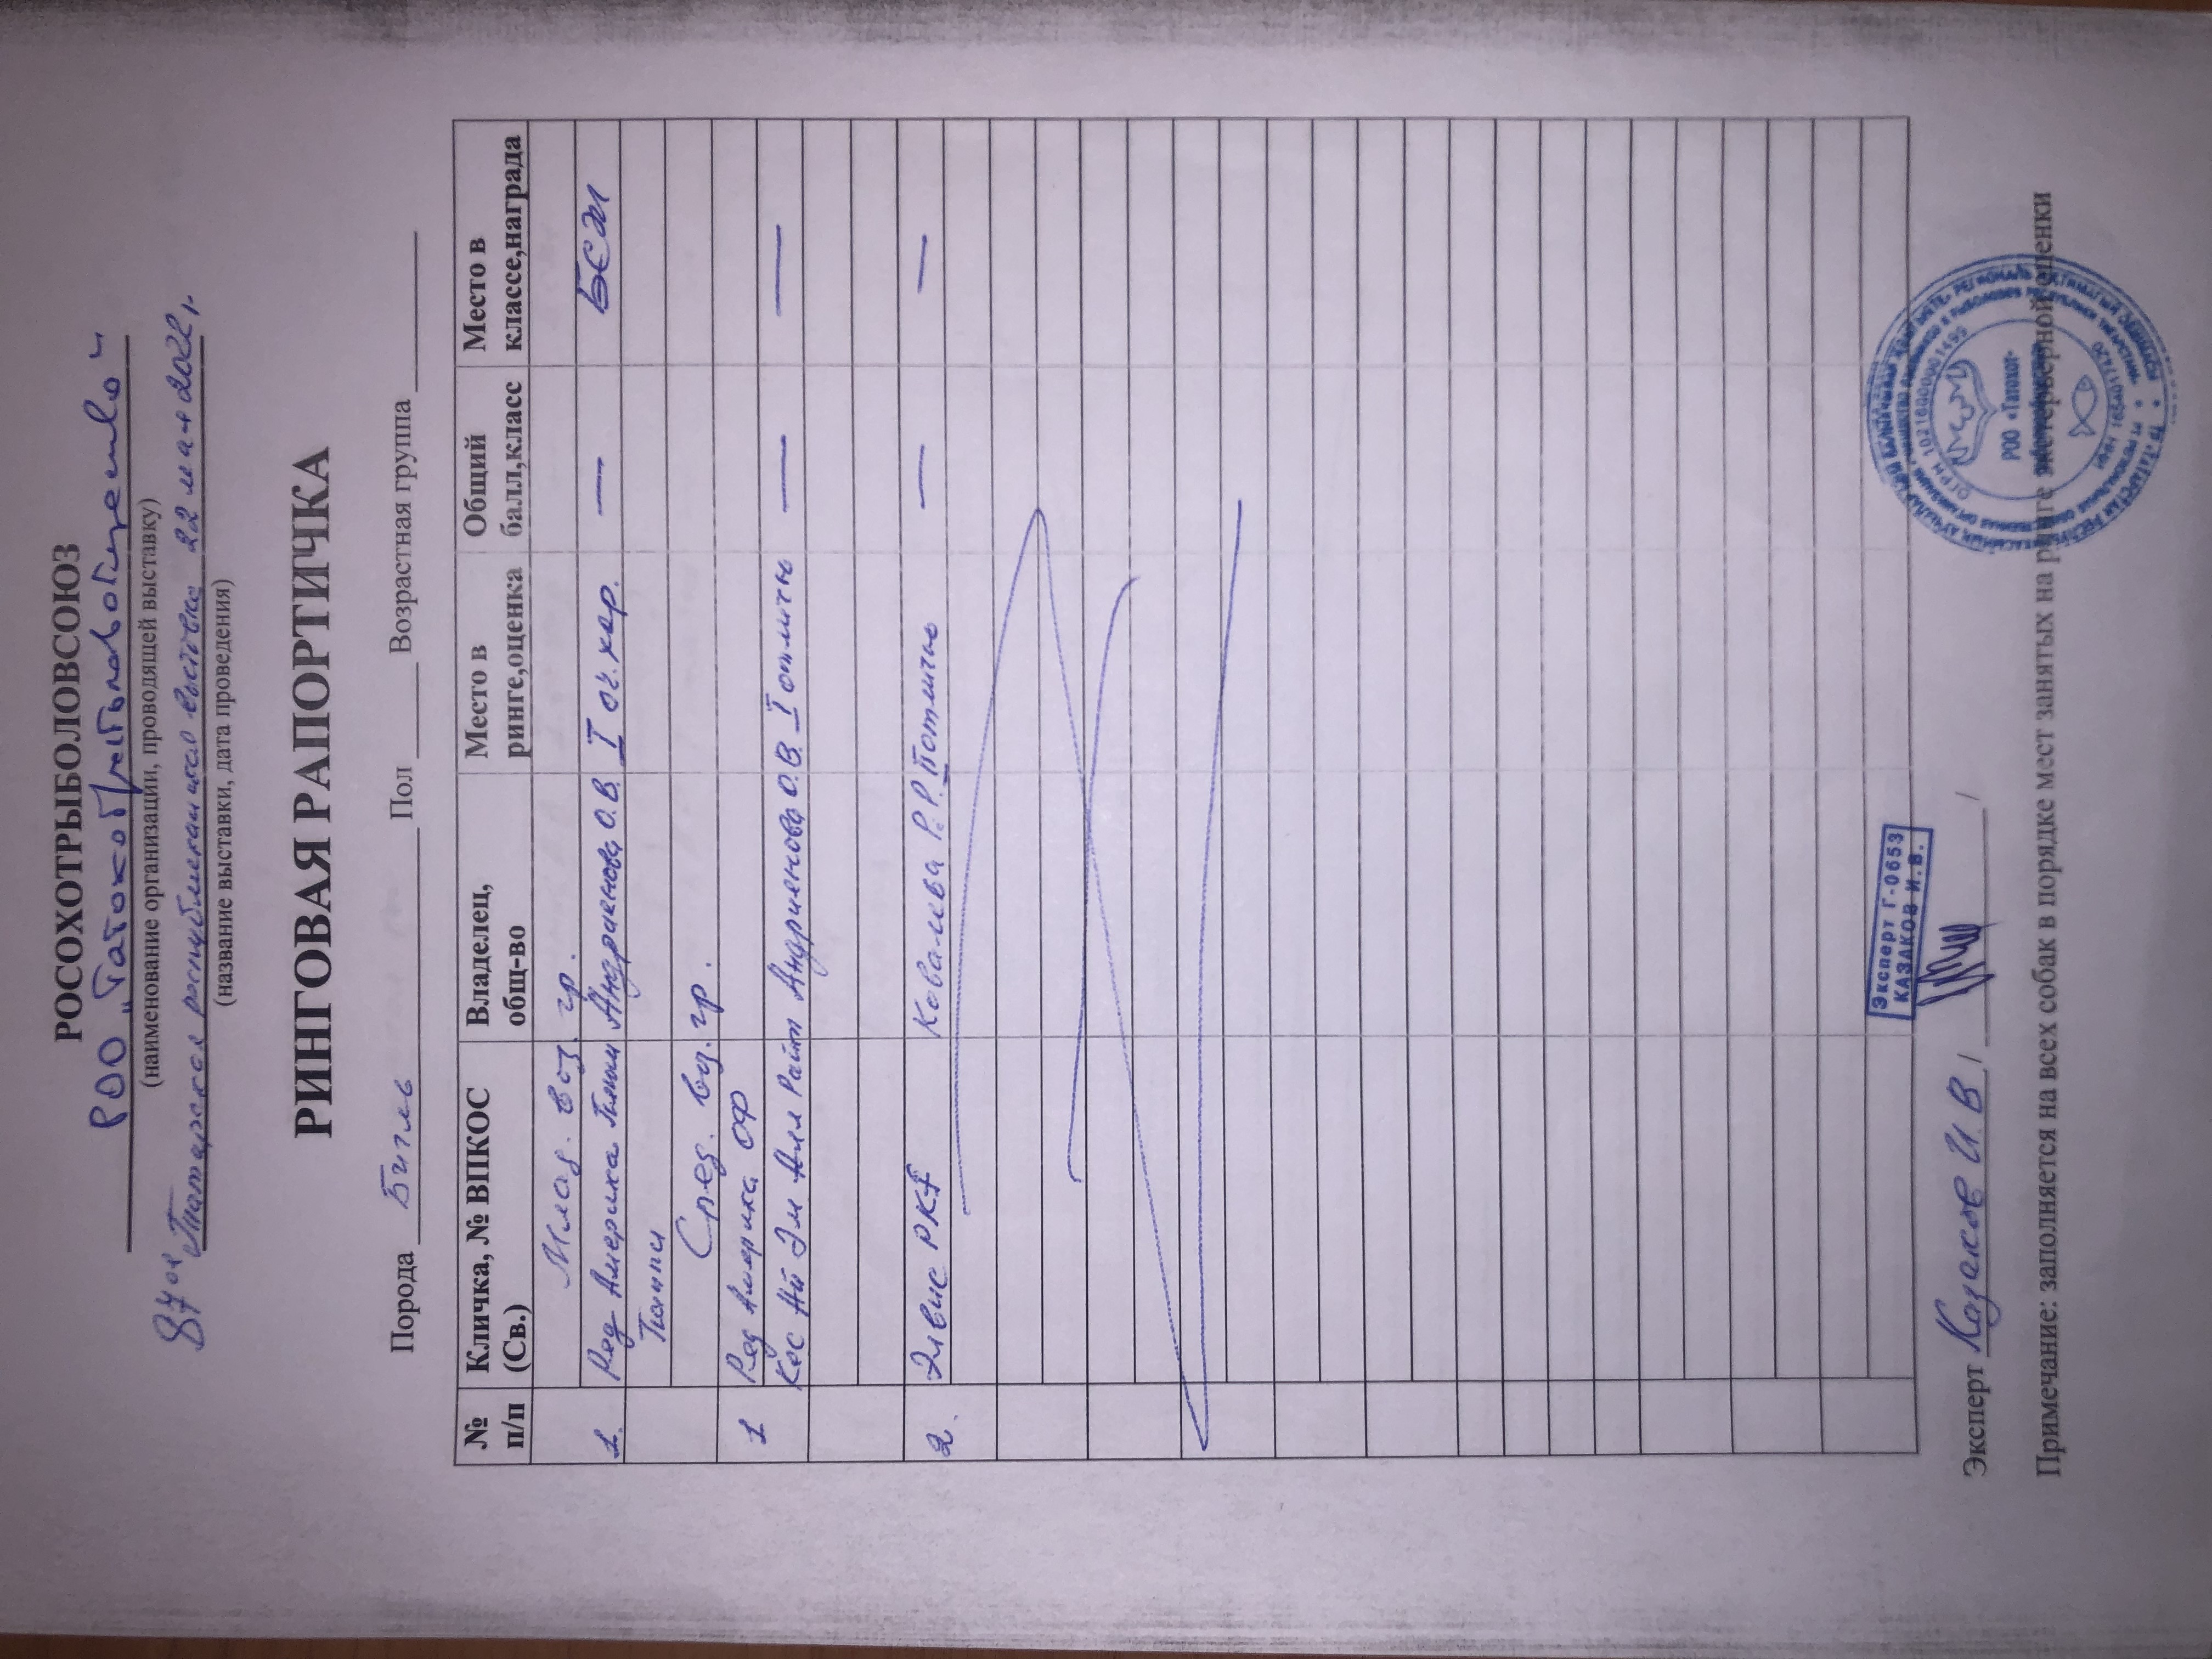 РОСОХОТРЫБОЛОВСОЮЗ
РОО "Татохотрыболовобщество"
(наименование организации, проводящей выставку)
87ая Татарская республиканская выставка 22 мая 2022 г.
(название выставки, дата проведения)
РИНГОВАЯ РАПОРТИЧКА
Порода Бигль Пол Возрастная группа
№ п/п Кличка, № ВПКОС (Св.) Владелец, общ-во Место в ринге,оценка Общий балл,класс Место в классе,награда
Млад. воз. гр.
1. Ред Америка Андриенова О.В. I оч. хор. —
Сред. воз. гр.
1 Ред Америка ОФ
Кос Ай Эм Алл Райт Андриенова О.В. I отлично — —
2. Элвис РКF Ковалева Р.Р. II отлично — —
Эксперт Г-0653
КАЗАКОВ И.В.
Эксперт Казаков И.В. / /
Примечание: заполняется на всех собак в порядке мест занятых на ринге экстерьерной оценки
ОГРН 1021600001495
РОО «Татохот-